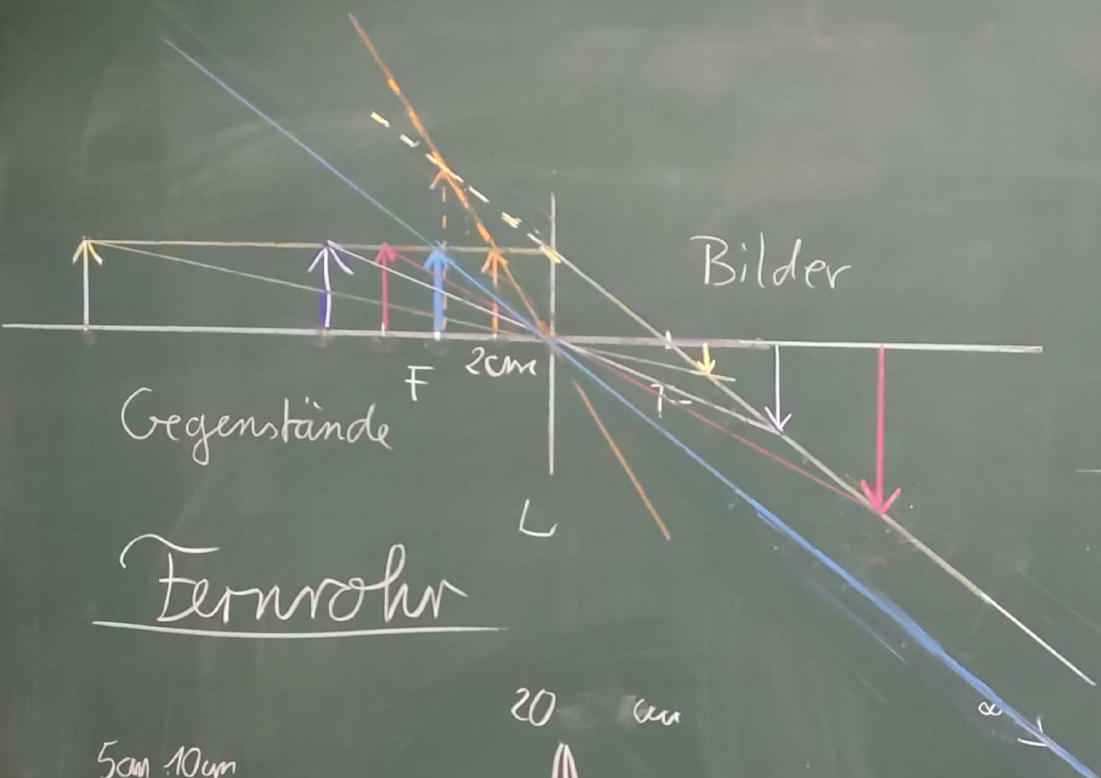 Bilder
2cm
F
Gegenstände
L
Fernrohr
20 cm
∞
5cm 10cm